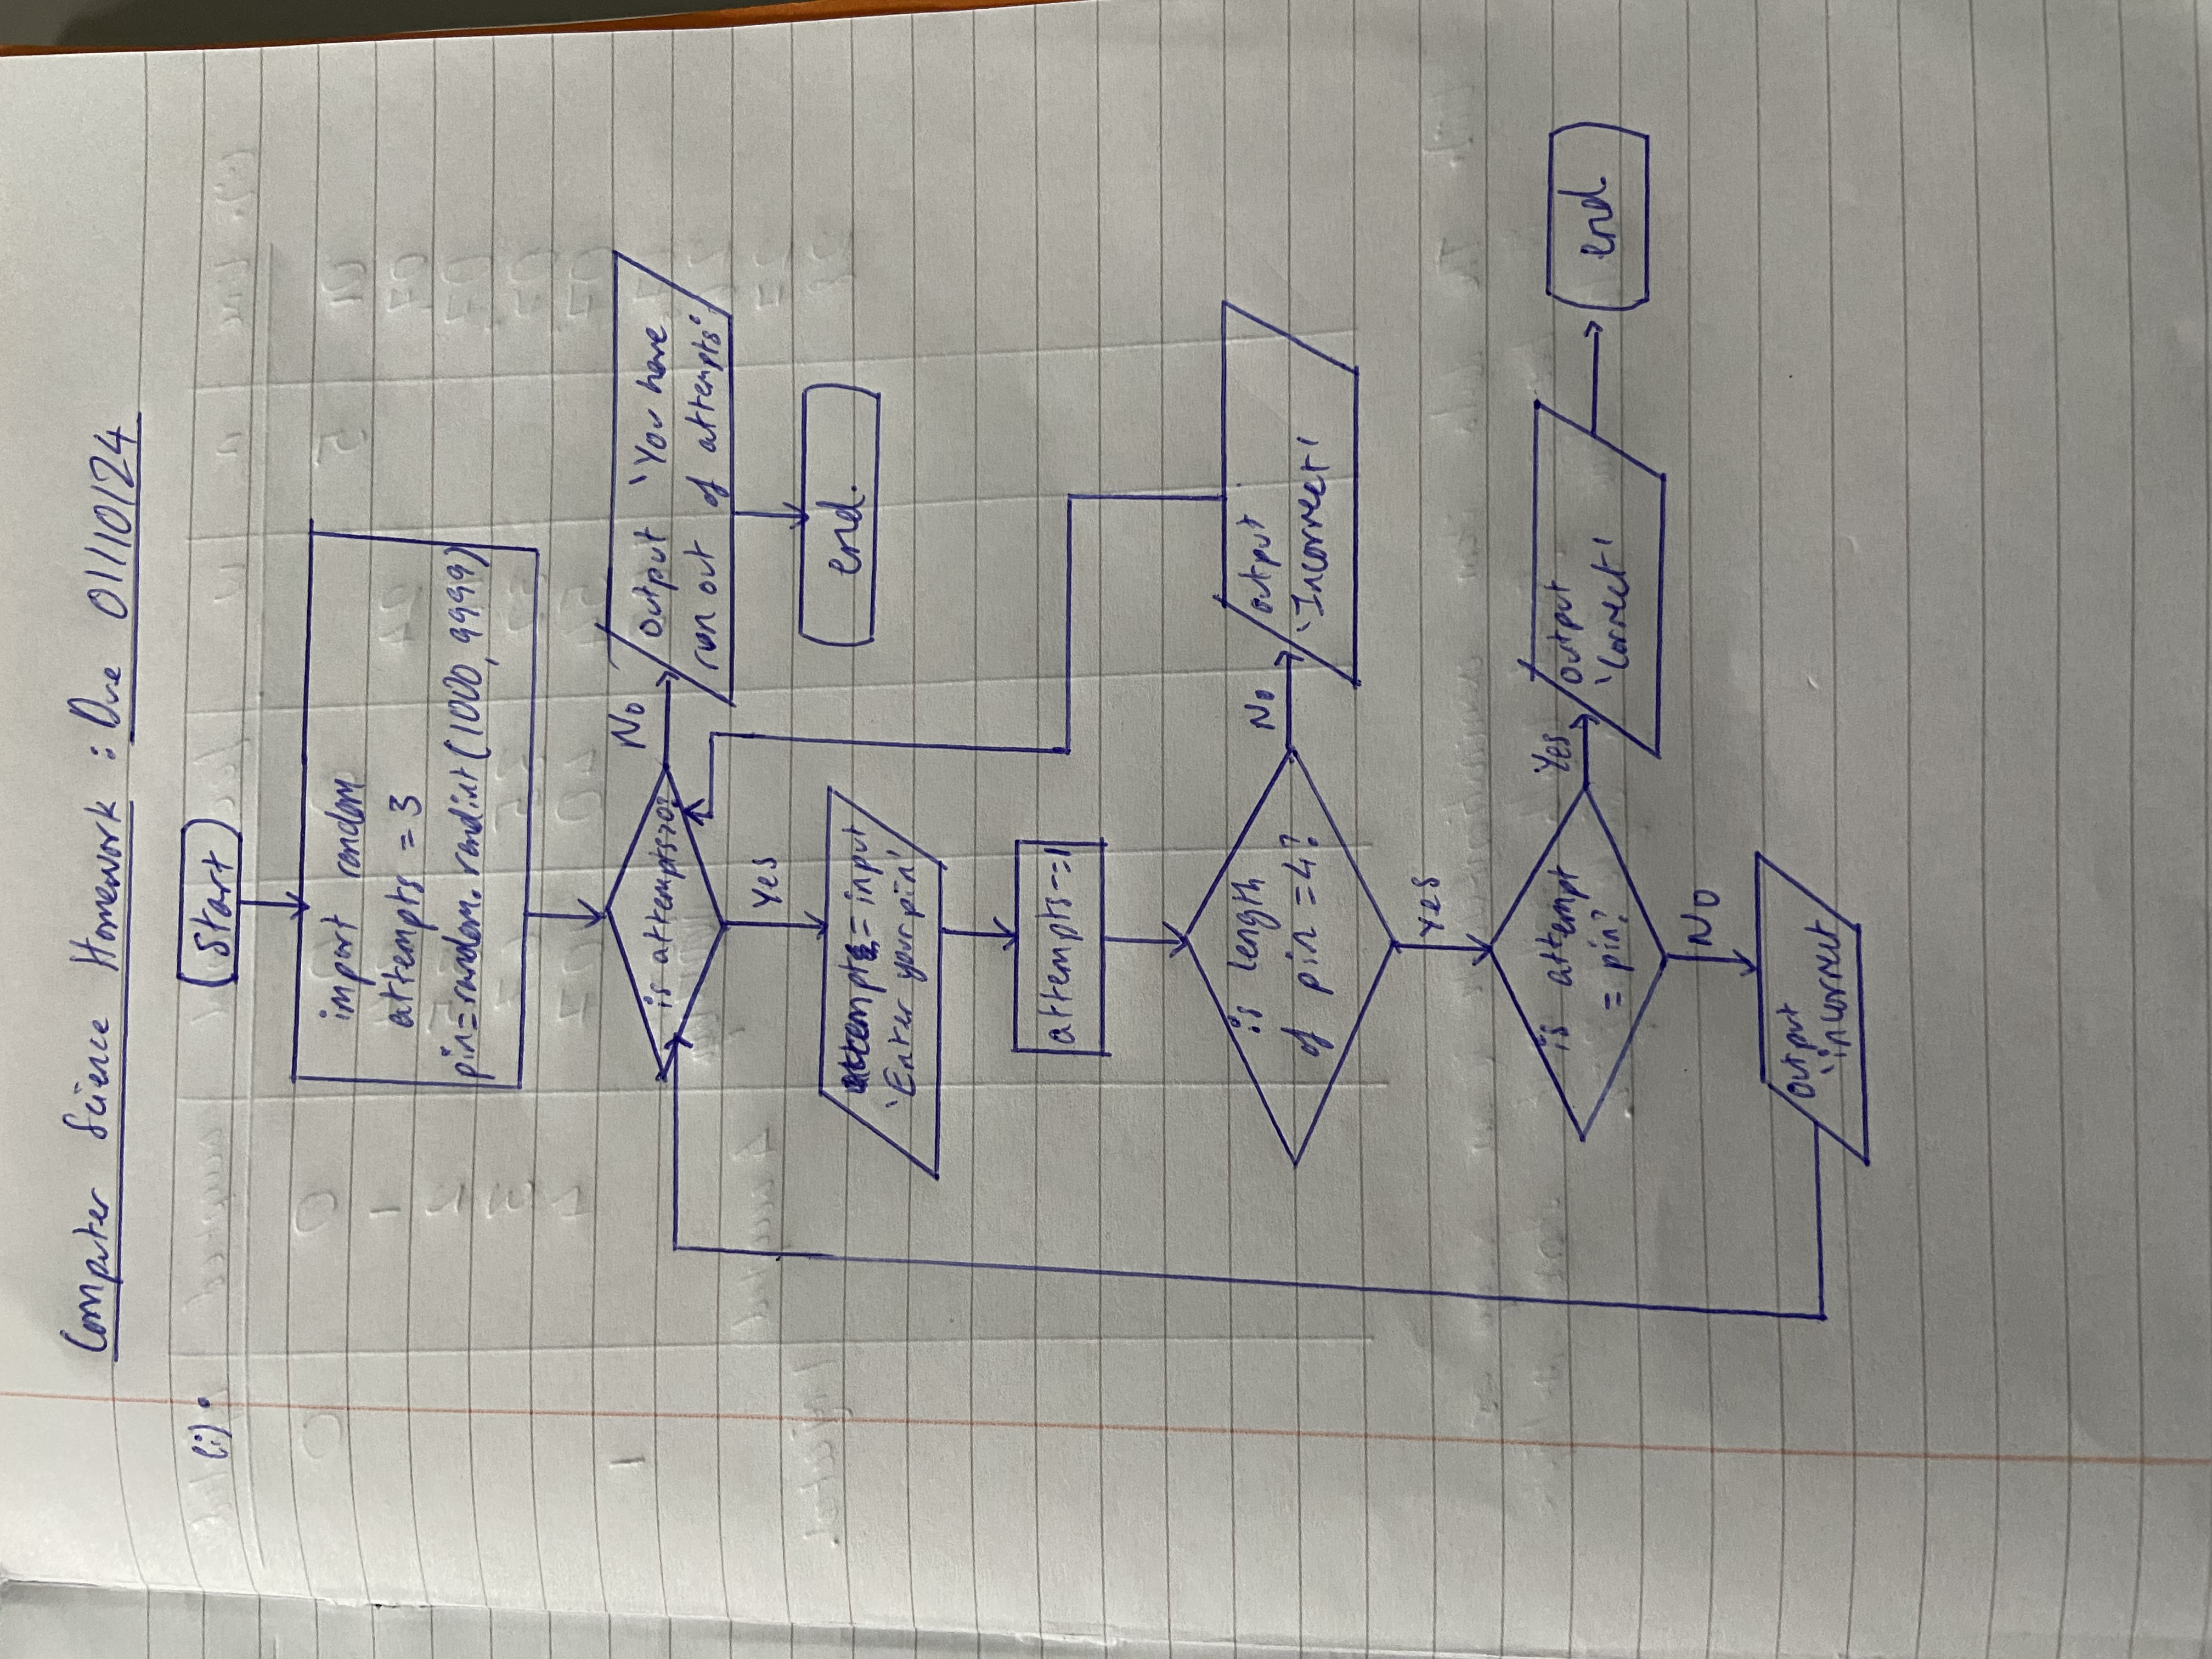 Computer Science Homework : Due 01/10/24
(i).
Start
import random
attempts = 3
pin=random.randint(1000,9999)
is attempts>0?
No
output 'You have
run out of attempts'
end.
Yes
attempt = input
'Enter your pin'
attempts-=1
is length
of pin =4?
No
output
'Incorrect'
Yes
is attempt
= pin?
Yes
output
'Correct'
end.
No
output
'incorrect